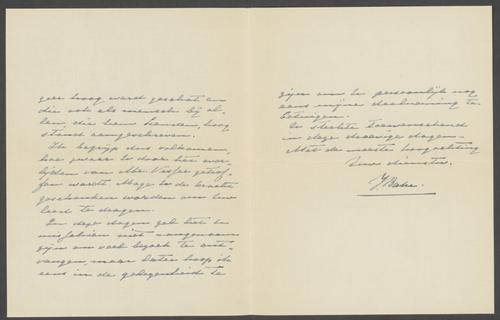 zeer hoog werd geschat en
die ook als mensch bij al-
len, die hem kenden, hoog
stond aangeschreven.
Ik begrijp dus volkomen,
hoe zwaar U door het over-
lijden van Mr. Visser getrof-
fen wordt. Moge U de kracht
geschonken worden om Uw
leed te dragen.
In deze dagen zal het U
misschien niet aangenaam
zijn om veel bezoek te ont-
vangen, maar later hoop ik
eens in de gelegenheid te
zijn om U persoonlijk nog
eens mijne deelneming te
betuigen.
U sterkte toewenschend
in deze droevige dagen
Met de meeste hoogachting
Uw dienstw.